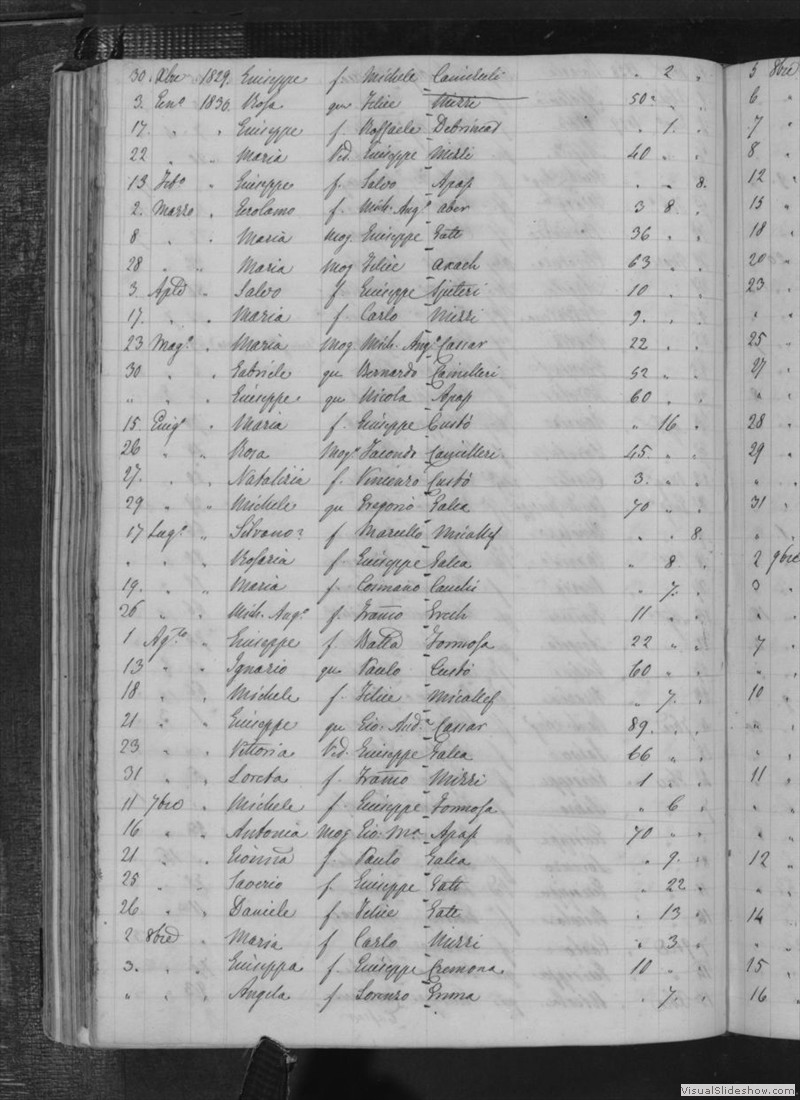 30 Xbre 1829. Giuseppe f Michele Camilleri " 2 "
3. Genº 1830. Rosa qu Felice Mizzi 50 " "
17 " " Giuseppe f. Raffaele " 1. "
22 " " Maria Ved. Giuseppe Mizzi 40 " "
13 Febº " Giuseppe f. Salvo Apap " " 8.
2. Marzo " Gerolamo f Mich. Angº 3 8. "
8 " " Maria Mog. Giuseppe Gatt 36 " "
28 " " Maria Mog Felice Axach 63 " "
3. " Salvo f Giuseppe Spiteri 10 " "
17. " " Maria f Carlo Mizzi 9. " "
23 Magº " Maria Mog. Mich. Angº Cassar 22 " "
30 " " Gabriele qu Bernardo Camilleri 52 " "
" " " Giuseppe qu Nicola Apap 60 " "
15 Giugº " Maria f. Giuseppe Custó " 16 "
26 " " Rosa Mogº Camilleri 45 " "
27. " " Natalizia f. Vincenzo Custó 3. " "
29 " " Michele qu Gregorio Galea 70 " "
17 Lugº " Silvano f Marcello Micallef " " 8.
" " " Rosaria f Giuseppe Galea " 8. "
19. " " Maria f. " 7. "
26 " " Mich. Angº f. Grech 11 " "
1 Agto " Giuseppe f Batta Formosa 22 " "
13 " " Ignazio qu Paulo Custó 60 " "
18 " " Michele f. Felice Micallef " 7. "
21 " " Giuseppe qu Gio. Andª Cassar 89. " "
23 " " Vittoria Ved. Giuseppe Galea 66 " "
31 " " Loreta f. Mizzi 1 " "
11 7bre " Michele f Giuseppe Formosa " 6 "
16 " " Antonia Mog Gio. Mª Apap 70 " "
21 " " f. Paulo Galea " 9. "
25 " " Saverio f. Giuseppe Gatt " 22 "
26 " " Daniele f. Felice Gatt " 13 "
2 8bre " Maria f Carlo Mizzi " 3. "
3. " " Giuseppa f. Giuseppe Cremona 10 " "
" " " Angela f Lorenzo " 7. "
5 8bre
6 "
7 "
8 "
12 "
13 "
18 "
20 "
23 "
" "
25 "
27 "
" "
28 "
29 "
31 "
" "
2 9bre
3 "
" "
7 "
" "
10 "
" "
" "
11 "
" "
" "
12 "
" "
14 "
" "
15 "
16 "
VisualSlideshow.com